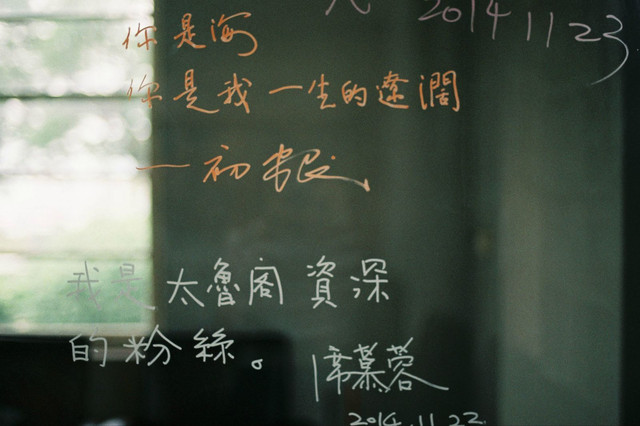 2014 11 23
你是海
你是我一生的遼闊
一初
我是太魯閣資深
的粉絲。
席慕蓉
2014.11.22.